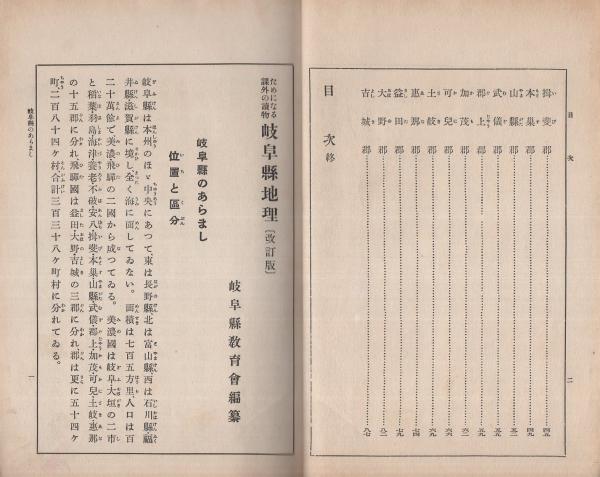 目次
揖斐郡……四五
本巣郡……四九
山縣郡……五二
武儀郡……五五
郡上郡……五九
加茂郡……六二
可兒郡……六六
土岐郡……六九
惠那郡……七四
益田郡……七九
大野郡……八二
吉城郡……八七
目次終
二
ためになる
課外の讀物
岐阜縣地理〔改訂版〕
岐阜縣敎育會編纂
岐阜縣のあらまし
位置と區分
岐阜縣は本州のほゞ中央にあつて東は長野縣、北は富山縣、西は石川縣福
井縣滋賀縣に境し全く海に面してゐない。面積は七百五方里、人口は百
二十萬餘で美濃飛驒の二國から成つてゐる。美濃國は岐阜大垣の二市
と稻葉羽島海津養老不破安八揖斐本巣山縣武儀郡上加茂可兒土岐惠那
の十五郡に分れ飛驒國は益田大野吉城の三郡に分れ郡は更に五十四ケ
町、二百八十四ケ村合計三百三十八ケ町村に分れてゐる。
岐阜縣のあらまし
一